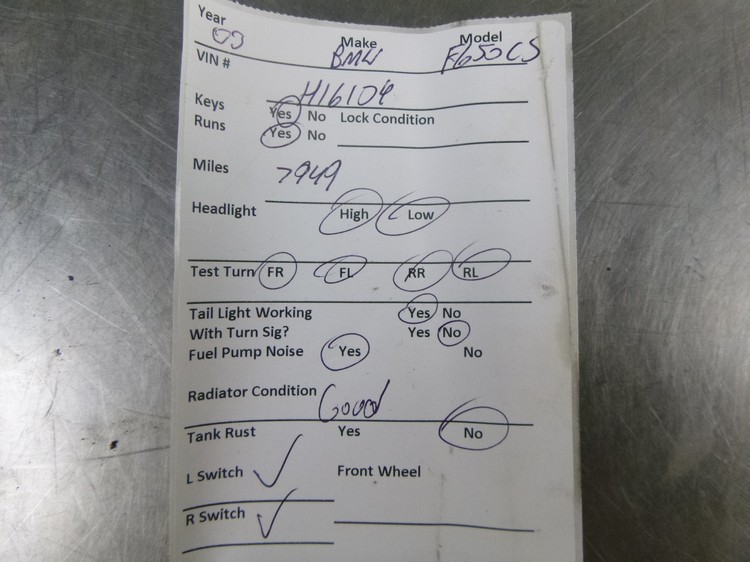 Year Make Model
03 BMW F650CS
VIN #
H16104
Keys Yes No Lock Condition
Runs Yes No
Miles 7949
Headlight High Low
Test Turn FR FL RR RL
Tail Light Working Yes No
With Turn Sig? Yes No
Fuel Pump Noise Yes No
Radiator Condition Good
Tank Rust Yes No
L Switch ✓ Front Wheel
R Switch ✓